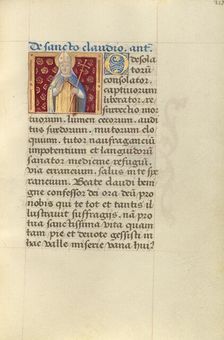 de sancto claudio. ant.
O desola
toru
consolator.
captiuorum
liberator. re
surrectio mor
tuorum. lumen cecorum. audi
tus surdorum. mutorum elo
quium. tutor naufragancium
impotentum et languidorum
sanator medicine refugiū.
via errancium. salus in te spe
rancium. Beate claudi beni
gne confessor dei ora deū pro
nobis qui te tot et tantis il
lustrauit suffragijs. nā pro
tua sanctissima vita quam
tam pie et deuote gessisti in
hac valle miserie vana huiꝰ